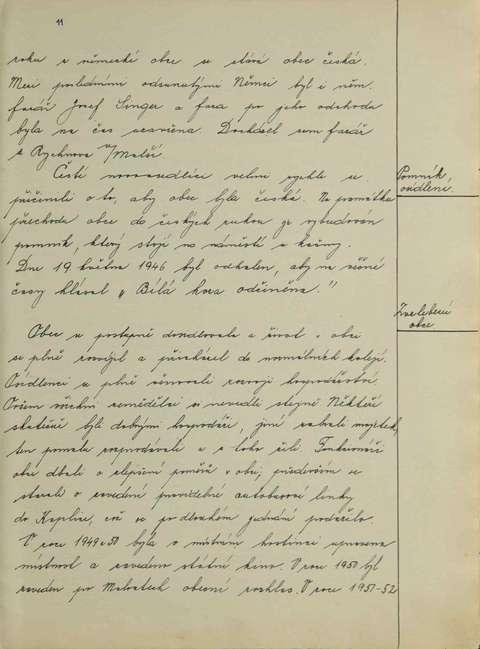 11
roku z německé obce se stává obec česká.
Mezi posledními odsunutými Němci byl i něm.
farář Josef Singer a fara po jeho odchodu
byla na čas uzavřena. Docházel sem farář
z Rychnova n/Malší.
Čeští novousedlíci velmi rychle se
přičinili o to, aby obec byla česká. Na památku
Pomník,
osídlení.
přechodu obce do českých rukou je vybudován
pomník, který stojí na náměstí u kašny.
Dne 19 května 1946 byl odhalen, aby na věčné
časy hlásal „Bílá hora odčiněna."
Zvelebení
obce
Obec se postupně dosídlovala a život v obci
se plně rozvíjel a přicházel do normálních kolejí.
Osídlenci se plně věnovali rozvoji hospodářství.
Ovšem všichni zemědělci si nevedli stejně. Někteří
skutečně byli dobrými hospodáři, jiní zabrali majetek,
ten pomalu rozprodávali a z toho žili. Funkcionáři
obce dbali o zlepšení poměrů v obci, především se
starali o zavedení pravidelné autobusové linky
do Kaplice, což se po dlouhém jednání podařilo.
V roce 1949 a 50 byla v místním hostinci upravena
místnost a zavedeno státní kino. V roce 1951 byl
zaveden po Malontech obecní rozhlas. V roce 1951-52